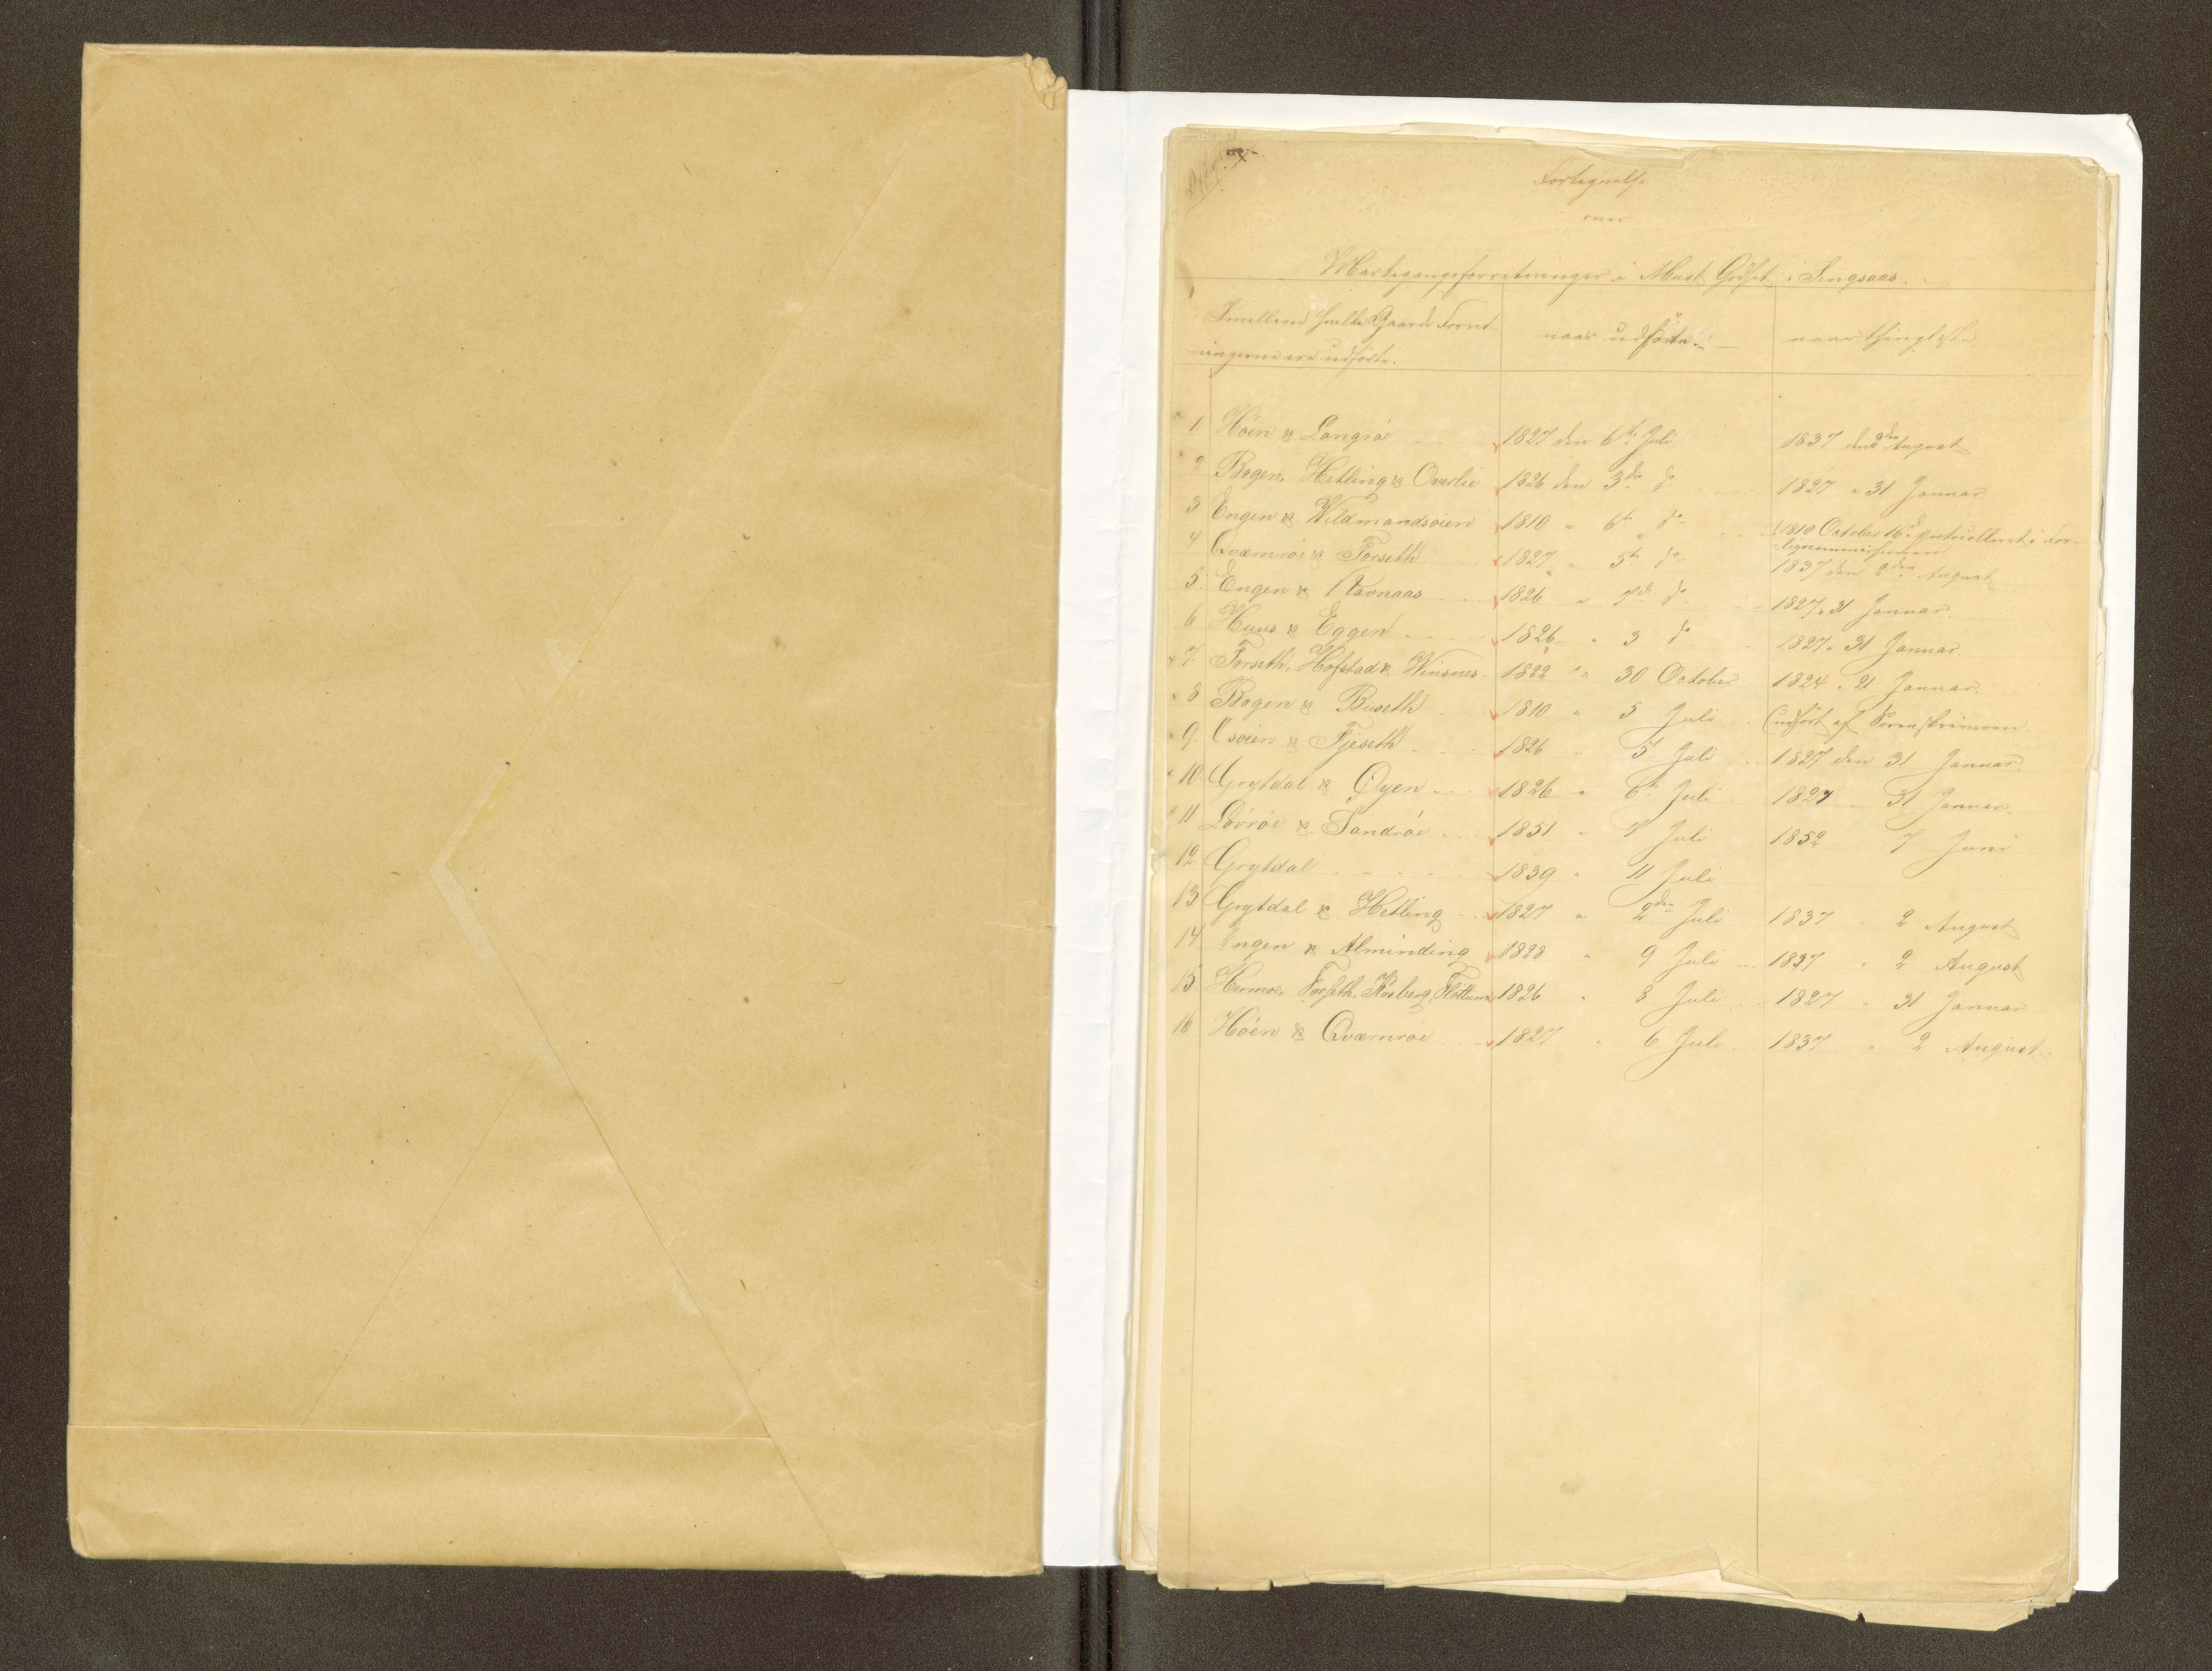 Fortegnelse
over
Markegangsforretninger i Must Godset i Singsaas.
Imellem hvilke Gaarde Forret-
ningerne ere udförte.
naar udförte
naar thinglæste
1 Höen & Langröe 1827 den 6te Juli 1837 den 2den August
2 Bogen, Hetling & Overlie 1826 den 3die do 1827 " 31 Januar
3 Engen & Wildmandsöien 1810 " 6te do 1810 October 16de i For-
ligscommissionen
4 Qværnröe & Forseth 1827 " 5te do 1837 den 2den August
5 Engen & Ravnaas 1826 " 7de do 1827 " 31 Januar
6 Huus & Eggen 1826 " 3 do 1827 " 31 Januar
7. Forseth, Hofstad & Winsnes 1822 " 30 October 1824 " 21 Januar.
8 Bogen & Buseth 1810 " 5 Juli udfört af
9. Osöien & Fjeseth 1826 5te Juli 1827 den 31 Januar
10 Grytdal & Øyen 1826 " 6te Juli 1827 31 Januar.
11 Lövröe & Sandröe 1851 " 7 Juli 1852 7 Juni
12 Grytdal 1839 " 11 Juli
13 Grytdal & Hetling 1827 " 2den Juli 1837 2 August
14 Engen & Alminding 1828 " 9 Juli 1837 " 2 August
15 Hermoe, Forseth, Kroberg, Flöttum 1826 " 8 Juli 1827 " 31 Januar
16 Höen & Qværnröe 1827 " 6 Juli 1837 " 2 August.